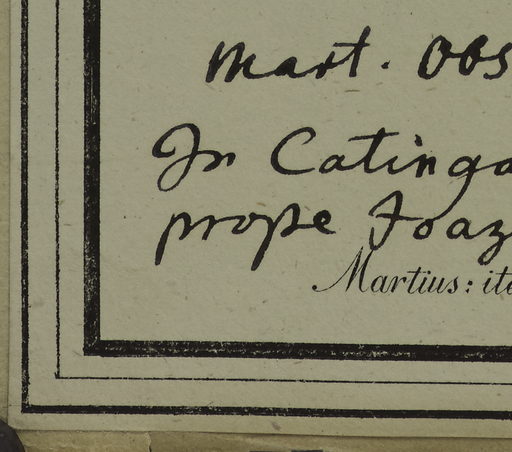 Mart. Obs
In Catinga
prope Joaz
Martius: ite